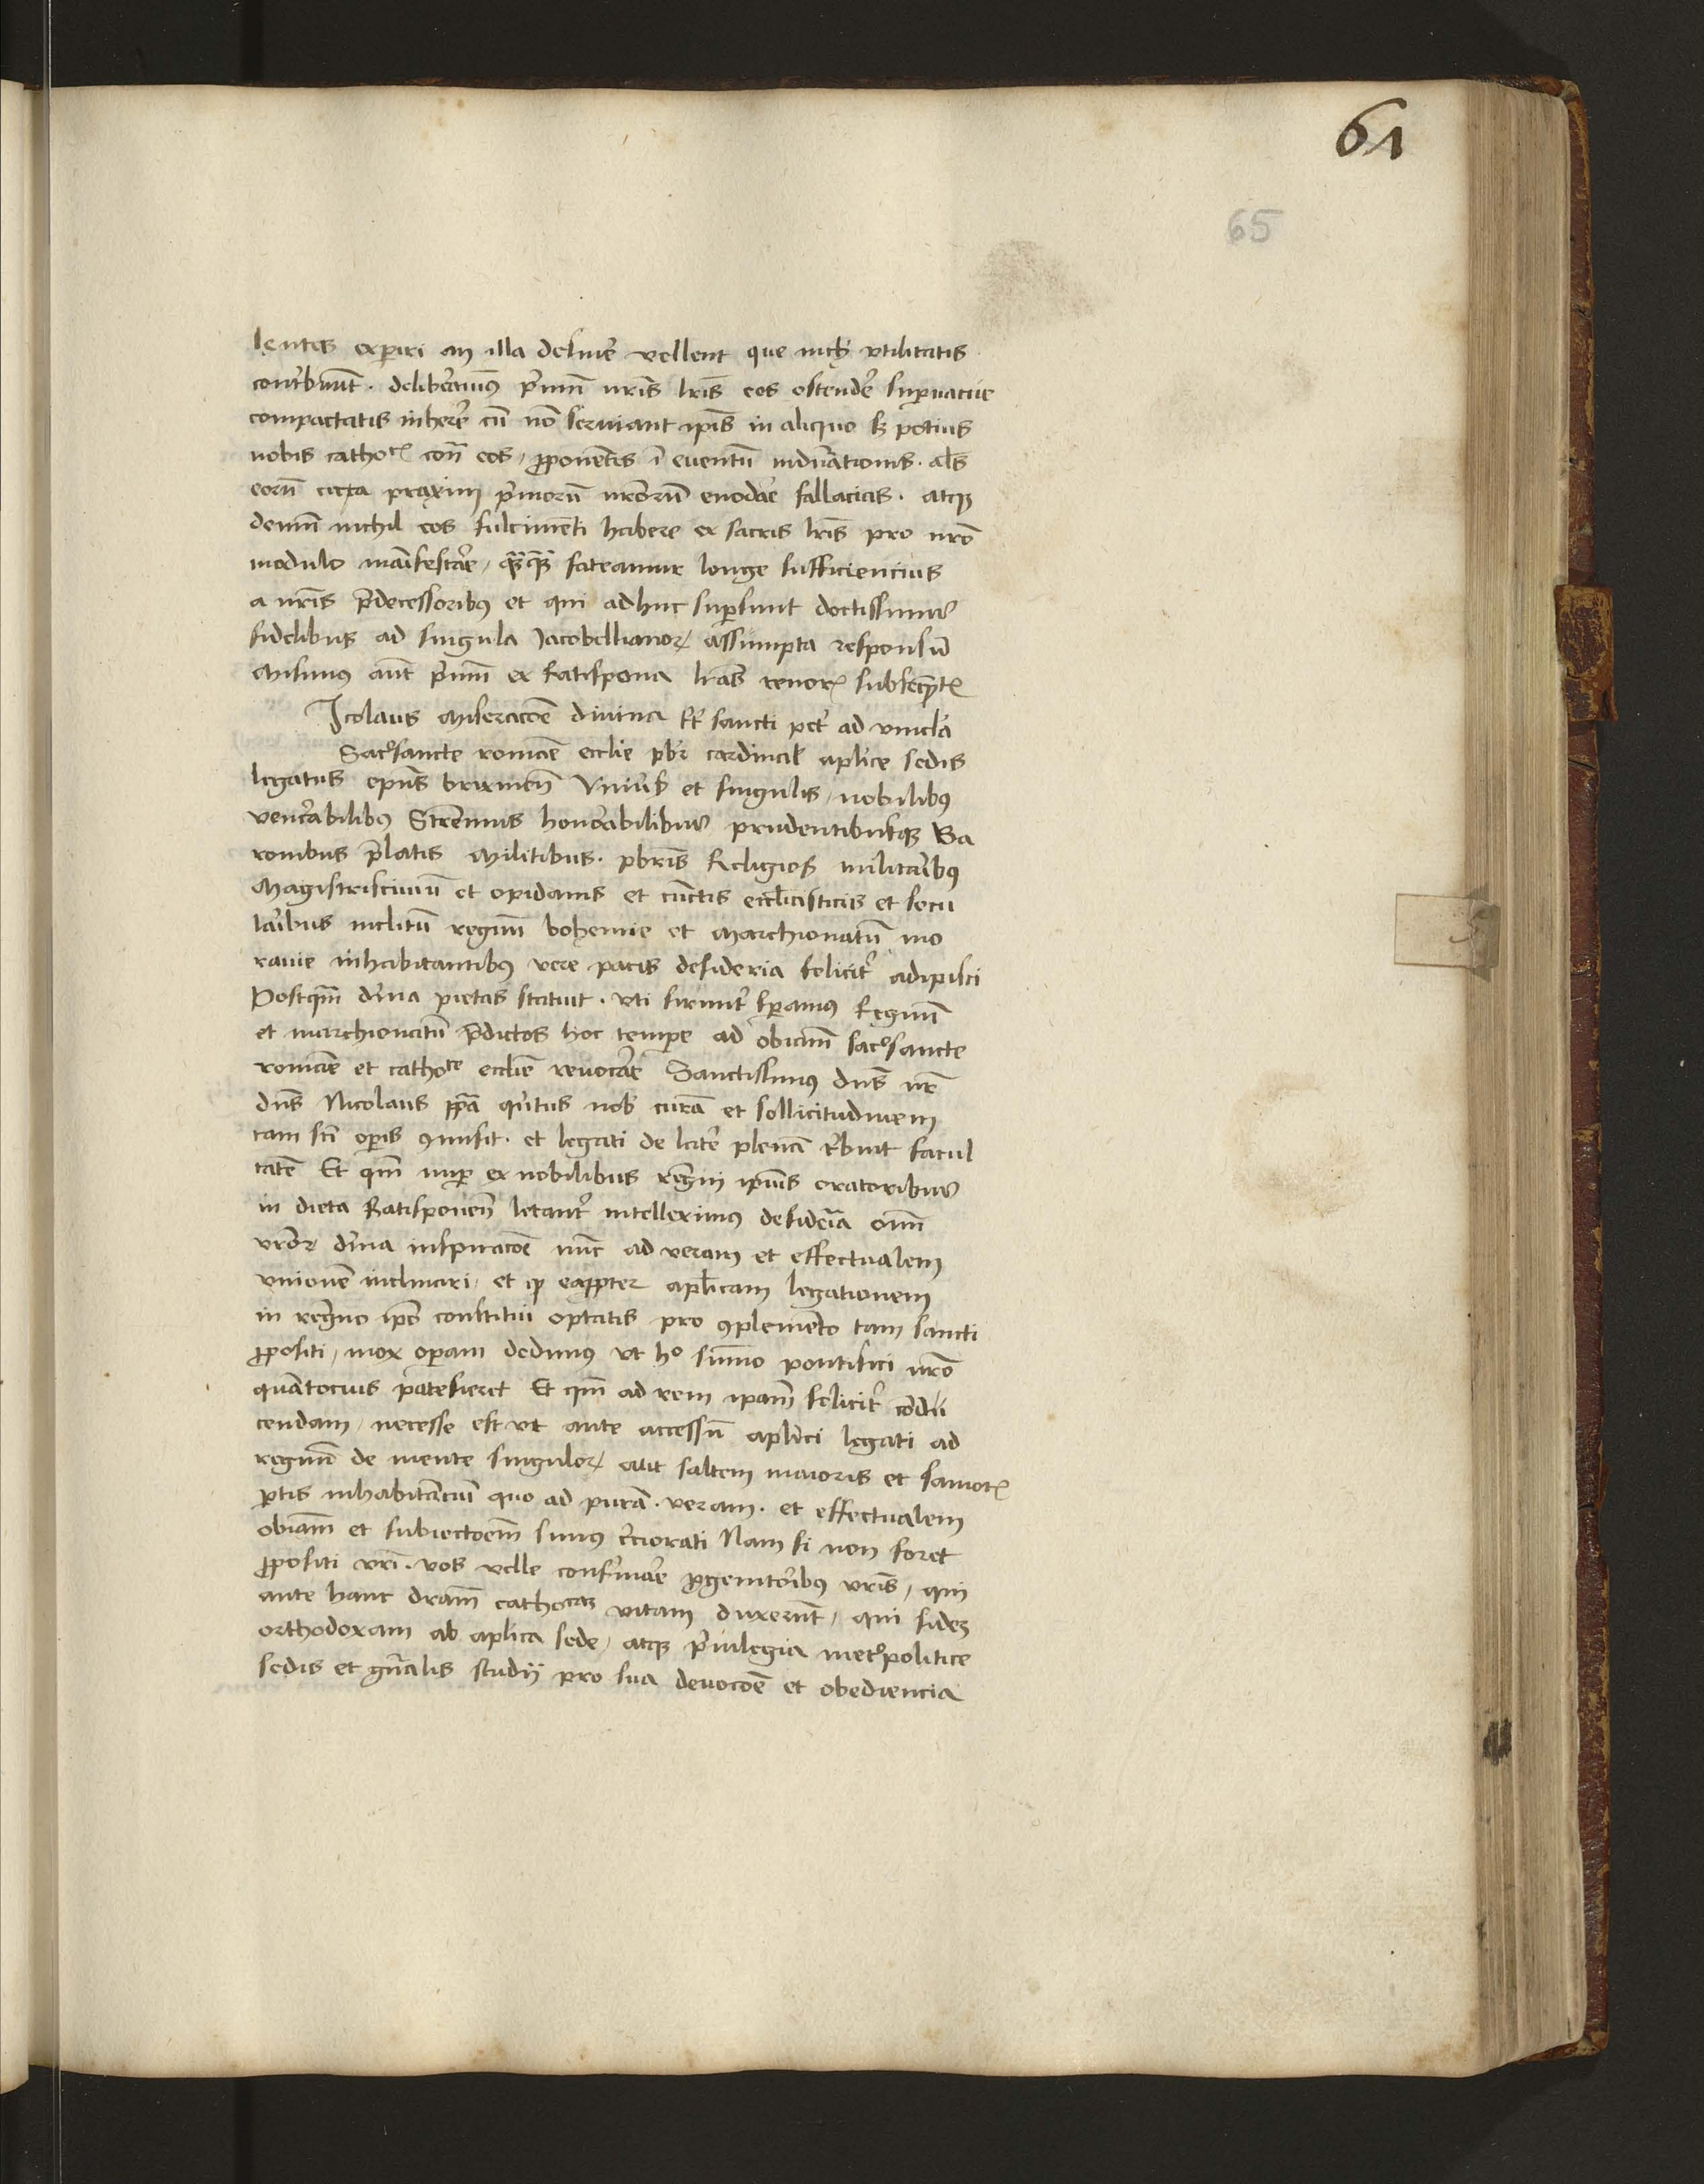 61
65
lentes experiri an illa desinere vellent que nichil utilitatis
contribuunt. deliberavimus prīmū nrīs lrīs eos ostendere supervacue
compactatis inherere cū nō serviant ipīs in aliquo sz potius
nobis catholicis contra eos, proponentes ī eventū indurationis. alīs
eorū circa praxim primorū errorū enodare fallacias. atqz
demū nichil eos fulcimenti habere ex sacris lrīs pro nrō
modulo manifestare, quāquā fateamur longe sufficiencius
a nrīs predecessoribus et qui adhuc supersunt doctissimis
fidelibus ad singula Jacobellianorꝝ assumpta responsū
Misimus autē primū ex Ratispona lrās tenoris subsequentis
Icolaus miseracōe divina tt sancti petri ad vincla
Sacrosancte romāe ecclie pbr cardinal aplice sedis
legatus epūs brixineñ Universis et singulis, nobilibus
venerabilibus Strennuis honorabilibus prudentibusqz Ba
ronibus prelatis Militibus. pbrīs Religios militaribus
Magistriscivium et opidanis et cūctis ecclīasticis et secu
laribus inclitū regnū bohemie et Marchionatū mo
ravie inhabitantibus vere pacis desideria feliciter adipisci
Postqm divina pietas statuit. uti firmiter speramus Regnū
et marchionatū predictos hoc tempore ad obiam sacrosancte
romāe et catholice ecclie revocare Sanctissimus dns nr
dns Nicolaus papa quintus nob curā et sollicitudinem
tam scti operis commisit. et legati de latere plenā tribuit facul
tatē Et qm nuper ex nobilibus regni ipius oratoribus
in dieta Ratisponeñ letanter intelleximus desideria omniū
vrorꝝ divina inspiracōe nūc ad veram et effectualem
unionē inclinari, et qd eapropter aplicam legationem
in regno ipo constitui optatis pro complemento tam sancti
propositi, mox operam dedimus ut hoc summo pontifici nrō
quantocius patefieret Et qm ad rem ipam feliciter condu
cendam, necesse est ut ante accessū aplici legati ad
regnū de mente singulorꝝ aut saltem maioris et sanioris
ptis inhabitanciū quo ad purā. veram. et effectualem
obiam et subiectoem simus cerciorati Nam si non foret
propositi vri. vos velle conformare progenitoribus vris, qui
ante hanc dram catholicas vitam duxerunt, qui fidez
orthodoxam ab aplica sede, atqz privilegia metropolitice
sedis et gnralis studij pro sua devocōe et obediencia